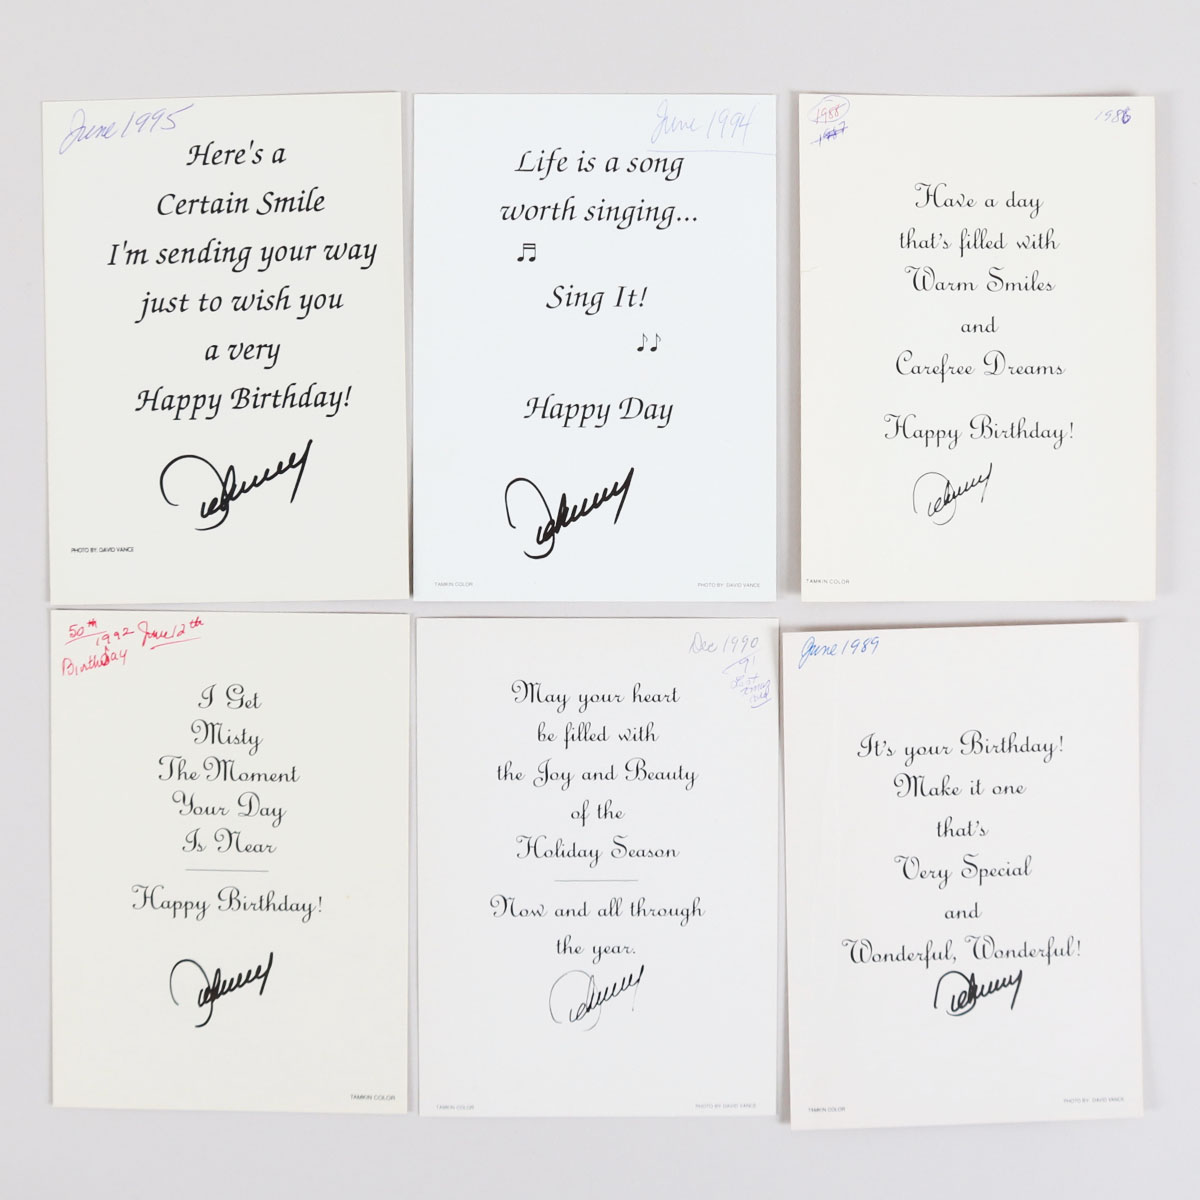 June 1995
Here's a
Certain Smile
I'm sending your way
just to wish you
a very
Happy Birthday!
Johnny
PHOTO BY: DAVID VANCE
June 1994
Life is a song
worth singing...
Sing It!
Happy Day
Johnny
TAMKIN COLOR
PHOTO BY: DAVID VANCE
1988
1987
1986
Have a day
that's filled with
Warm Smiles
and
Carefree Dreams
Happy Birthday!
Johnny
TAMKIN COLOR
50th 1992 June 12th
Birthday
I Get
Misty
The Moment
Your Day
Is Near
Happy Birthday!
Johnny
TAMKIN COLOR
Dec 1990
91
May your heart
be filled with
the Joy and Beauty
of the
Holiday Season
Now and all through
the year.
Johnny
TAMKIN COLOR
PHOTO BY: DAVID VANCE
June 1989
It's your Birthday!
Make it one
that's
Very Special
and
Wonderful, Wonderful!
Johnny
TAMKIN COLOR
PHOTO BY: DAVID VANCE